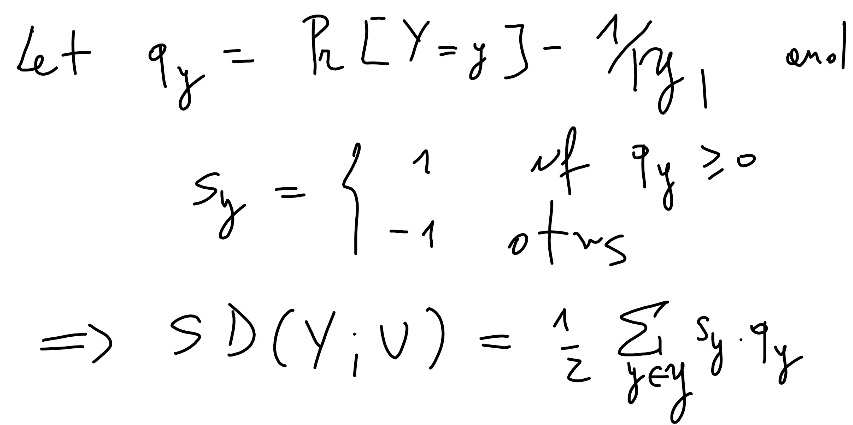 Let q_y = Pr[Y=y] - 1/|𝒴|, and
s_y = { 1 if q_y ≥ 0
-1 otws
⇒ SD(Y; U) = 1/2 ∑_{y∈𝒴} s_y · q_y